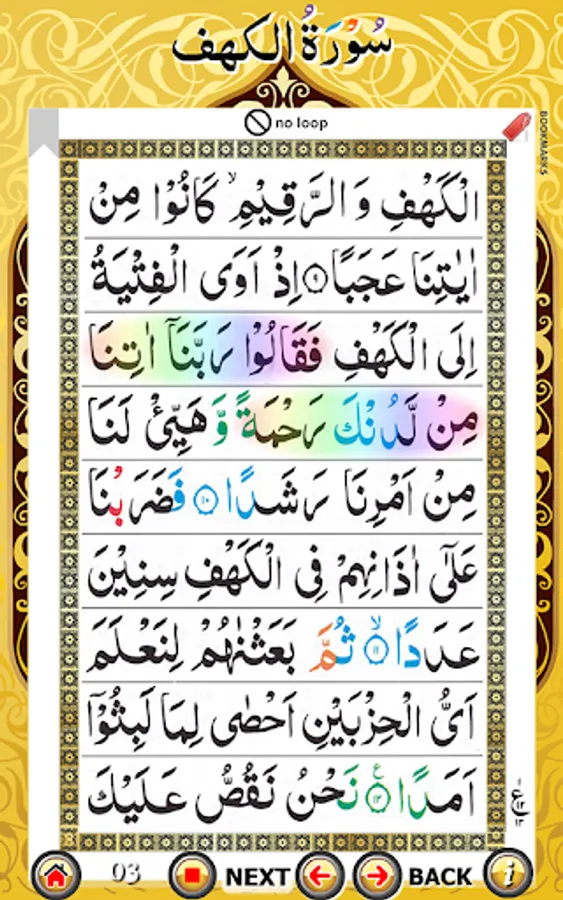 سُوْرَةُ الكهف
no loop
BOOKMARKS
الْكَهْفِ وَ الرَّقِيْمِ ۙ كَانُوْا مِنْ
اٰيٰتِنَا عَجَبًا ۹ اِذْ اَوَى الْفِتْيَةُ
اِلَى الْكَهْفِ فَقَالُوْا رَبَّنَاۤ اٰتِنَا
مِنْ لَّدُنْكَ رَحْمَةً وَّ هَيِّئْ لَنَا
مِنْ اَمْرِنَا رَشَدًا ۱۰ فَضَرَبْنَا
عَلٰۤى اٰذَانِهِمْ فِى الْكَهْفِ سِنِيْنَ
عَدَدًا ۙ ۱۱ ثُمَّ بَعَثْنٰهُمْ لِنَعْلَمَ
اَىُّ الْحِزْبَيْنِ اَحْصٰى لِمَا لَبِثُوْۤا
اَمَدًا ۱۲ ع نَحْنُ نَقُصُّ عَلَيْكَ
03 NEXT BACK i